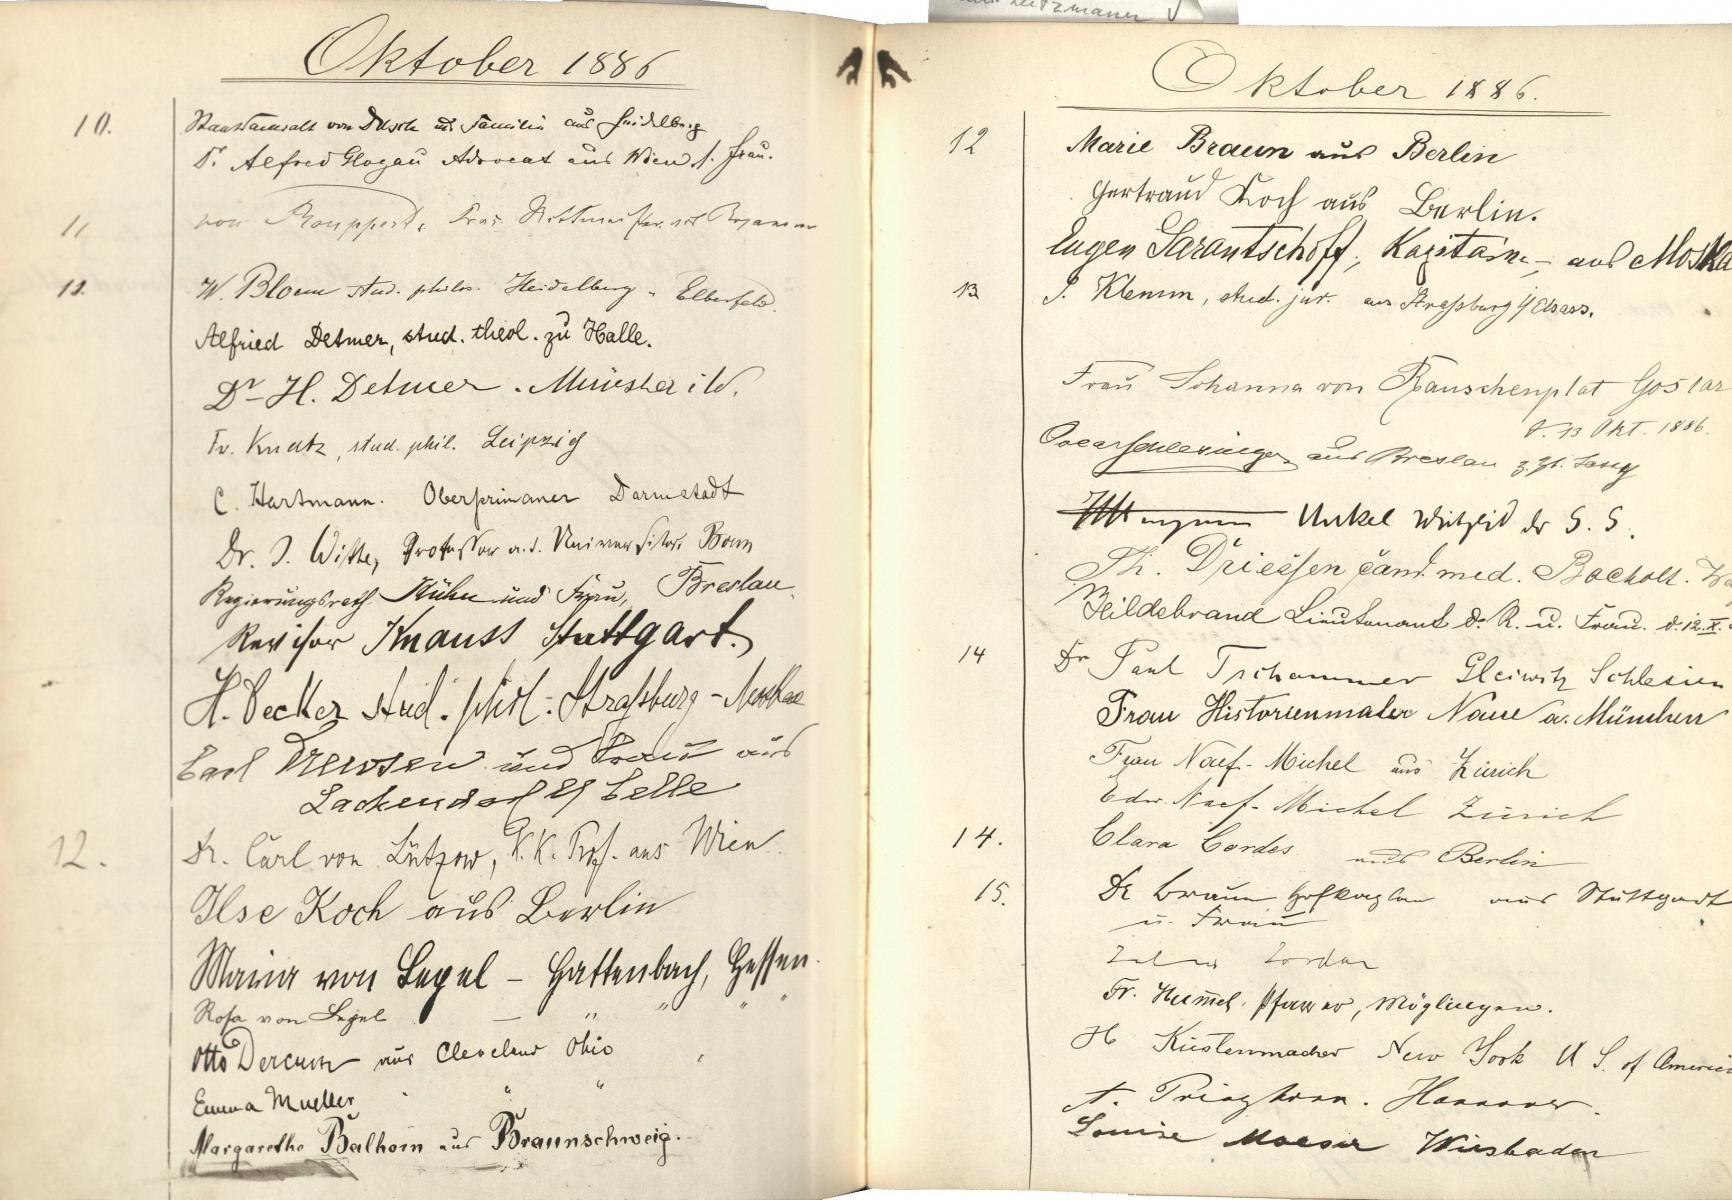 Oktober 1886
10. Staatsanwalt von Dusch und Familie aus Heidelberg
Dr. Alfred Glogau Advocat aus Wien s. Frau.
11 von
12. W. Bloem stud. philos. Heidelberg - Elberfeld.
Alfried Detmer, stud. theol. zu Halle.
Dr H. Detmer. Münster i W.
Fr. Knatz, stud. phil. Leipzig
C. Hartmann. Oberprimaner Darmstadt
Dr. J. Witte, Professor a. d. Universität. Bonn
Regierungsrath Kühn und Frau, Breslau.
Revisor Knauss Stuttgart.
H. Becker stud. phil. Strassburg -
Carl Drewsen und Frau aus
Lachendorf b/ Celle
12. Dr. Carl von Lützow, K. K. Prof. aus Wien
Ilse Koch aus Berlin
Maria von Lepel - Hattenbach, Hessen.
Rosa von Lepel — " " "
Otto Dercum aus Cleveland Ohio
Emma Mueller " "
Margarethe Balhorn aus Braunschweig.
Oktober 1886.
12 Marie Braun aus Berlin
Gertraud Koch aus Berlin.
Eugen Sarantschoff, Kapitain, aus Moska
13 J. Klemm, stud. jur. aus Straßburg i/Elsass.
Frau Johanna von Rauschenplat Goslar
d. 13 Okt. 1886.
Oscar Schlesinger aus Breslau z. Zt.
Unkel Mitglied der S. S.
Th. Driessen cand. med. Bocholt.
Hildebrand Lieutenant d. R. u. Frau. d. 12. X.
14 Dr Paul Tschammer Gleiwitz Schlesien
Frau Historienmaler Naue a. München
Frau Naef-Michel aus Zürich
Edw. Naef-Michel Zürich
14. Clara Cordes aus Berlin
15. Dr Braun Hofkaplan aus Stuttgart
u. Frau
Fr. Hummel. Pfarrer, Möglingen.
H Küstenmacher New York U S. of Americ
A. Pringhorn. Hannover.
Louise Moeser Wiesbaden